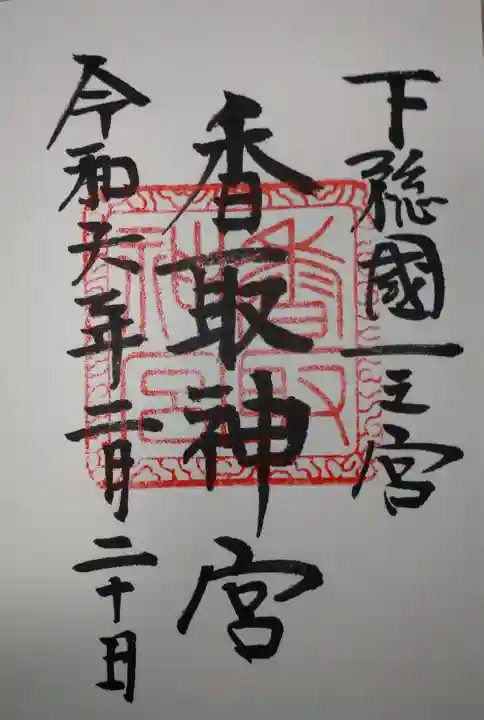 下総國一之宮
香取神宮
令和六年二月二十日
香取神宮